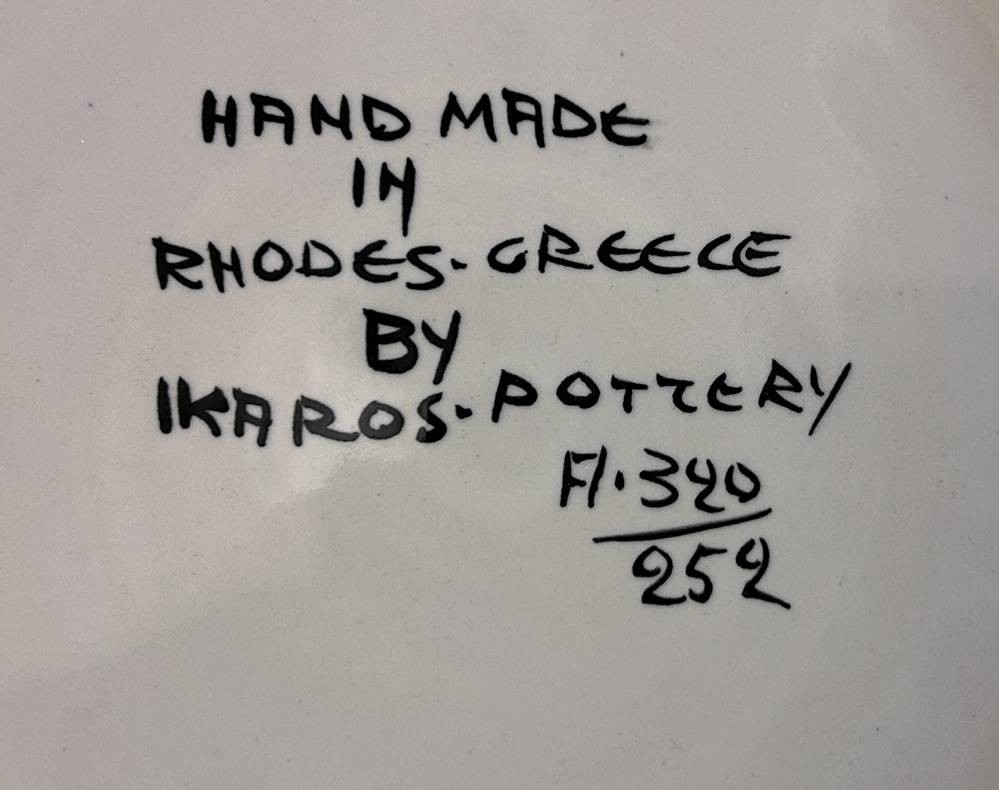 HAND MADE
IN
RHODES-GREECE
BY
IKAROS-POTTERY
252